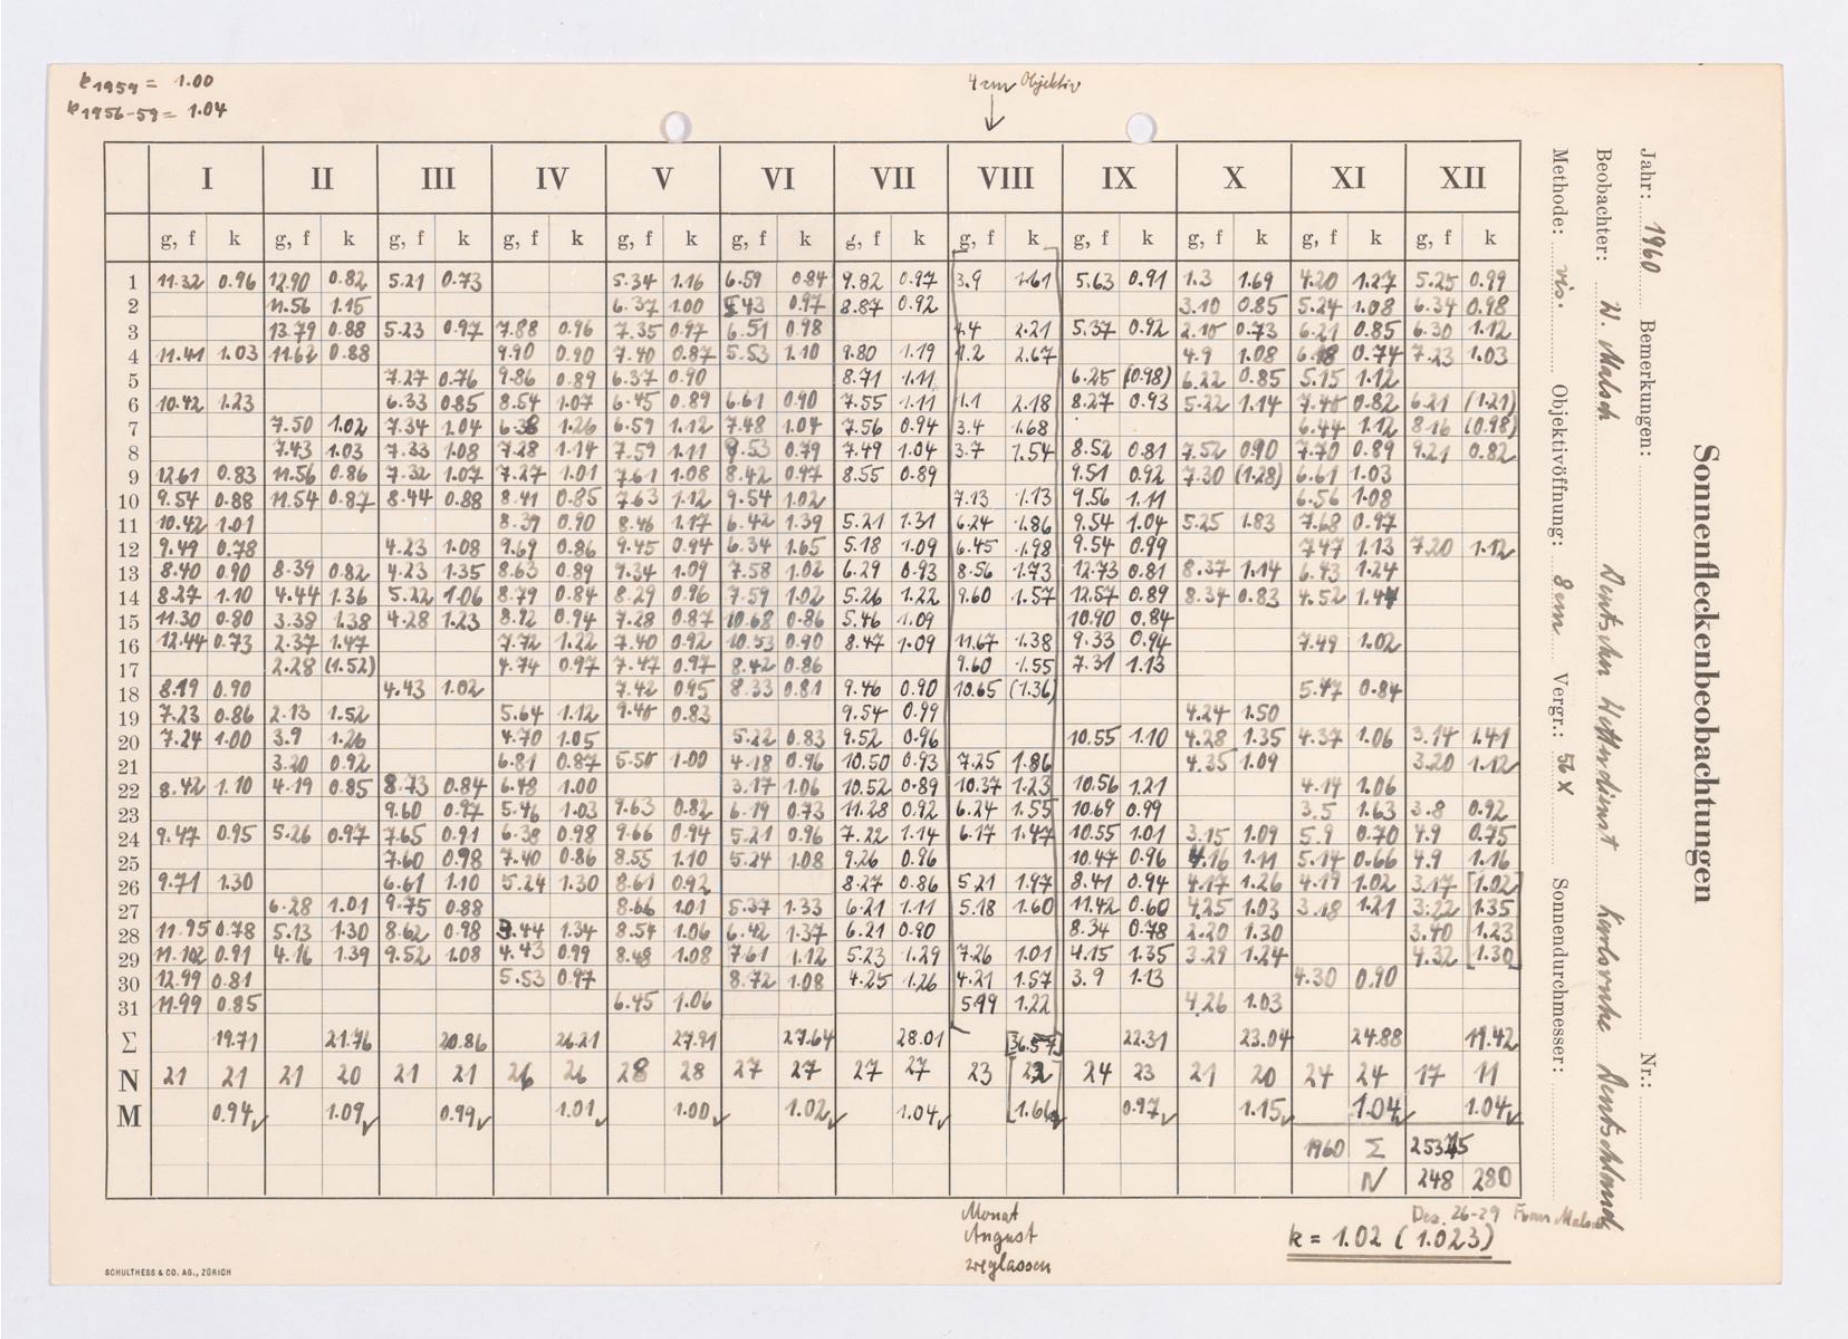 k1959 = 1.00
k1956-59 = 1.04
4 cm Objektiv
I II III IV V VI VII VIII IX X XI XII
g, f k g, f k g, f k g, f k g, f k g, f k g, f k g, f k g, f k g, f k g, f k g, f k
1 11.32 0.96 12.90 0.82 5.21 0.73 5.34 1.16 6.59 0.84 9.82 0.97 3.9 1.61 5.63 0.91 1.3 1.69 4.20 1.27 5.25 0.99
2 11.56 1.15 6.37 1.00 5.43 0.97 8.87 0.92 3.10 0.85 5.24 1.08 6.34 0.98
3 13.79 0.88 5.23 0.97 7.88 0.96 7.35 0.97 6.51 0.98 4.4 2.21 5.37 0.92 2.10 0.73 6.21 0.85 6.30 1.12
4 11.41 1.03 11.62 0.88 9.90 0.90 7.40 0.87 5.53 1.10 9.80 1.19 1.2 2.67 4.9 1.08 6.18 0.74 7.23 1.03
5 7.27 0.76 9.86 0.89 6.37 0.90 8.71 1.11 6.25 (0.98) 6.22 0.85 5.15 1.12
6 10.42 1.23 6.33 0.85 8.54 1.07 6.45 0.89 6.61 0.90 7.55 1.11 1.1 2.18 8.27 0.93 5.22 1.14 7.40 0.82 6.21 (1.21)
7 7.50 1.02 7.34 1.04 6.38 1.26 6.59 1.12 7.48 1.04 7.56 0.94 3.4 1.68 6.44 1.12 8.16 (0.98)
8 7.43 1.03 7.33 1.08 7.28 1.14 7.59 1.11 9.53 0.79 7.49 1.04 3.7 1.54 8.52 0.81 7.52 0.90 7.70 0.89 9.21 0.82
9 12.61 0.83 11.56 0.86 7.32 1.07 7.27 1.01 7.61 1.08 8.42 0.97 8.55 0.89 9.51 0.92 7.30 (1.28) 6.61 1.03
10 9.54 0.88 11.54 0.87 8.44 0.88 8.41 0.85 7.63 1.12 9.54 1.02 7.13 1.13 9.56 1.11 6.56 1.08
11 10.42 1.01 8.39 0.90 8.46 1.17 6.42 1.39 5.21 1.31 6.24 1.86 9.54 1.04 5.25 1.83 7.68 0.97
12 9.49 0.78 4.23 1.08 9.69 0.86 9.45 0.94 6.34 1.65 5.18 1.09 6.45 1.98 9.54 0.99 7.47 1.13 7.20 1.12
13 8.40 0.90 8.39 0.82 4.23 1.35 8.63 0.89 9.34 1.09 7.58 1.02 6.29 0.93 8.56 1.73 12.73 0.81 8.37 1.14 6.43 1.24
14 8.27 1.10 4.44 1.36 5.22 1.06 8.79 0.84 8.29 0.96 7.59 1.02 5.26 1.22 9.60 1.57 12.57 0.89 8.34 0.83 4.52 1.44
15 11.30 0.80 3.38 1.38 4.28 1.23 8.92 0.94 7.28 0.87 10.68 0.86 5.46 1.09 10.90 0.84
16 12.44 0.73 2.37 1.47 7.72 1.22 7.40 0.92 10.53 0.90 8.47 1.09 11.67 1.38 9.33 0.94 7.49 1.02
17 2.28 (1.52) 4.74 0.97 7.47 0.97 8.42 0.86 9.60 1.55 7.31 1.13
18 8.19 0.90 4.43 1.02 7.42 0.95 8.33 0.81 9.46 0.90 10.65 (1.36) 5.47 0.84
19 7.23 0.86 2.13 1.52 5.64 1.12 9.40 0.83 9.54 0.99 4.24 1.50
20 7.24 1.00 3.9 1.26 4.70 1.05 5.22 0.83 9.52 0.96 10.55 1.10 4.28 1.35 4.37 1.06 3.14 1.41
21 3.20 0.92 6.81 0.87 5.50 1.00 4.18 0.96 10.50 0.93 7.25 1.86 4.35 1.09 3.20 1.12
22 8.42 1.10 4.19 0.85 8.73 0.84 6.48 1.00 3.17 1.06 10.52 0.89 10.37 1.23 10.56 1.21 4.14 1.06
23 9.60 0.97 5.46 1.03 9.63 0.82 6.19 0.73 11.28 0.92 6.24 1.55 10.69 0.99 3.5 1.63 3.8 0.92
24 9.47 0.95 5.26 0.97 7.65 0.91 6.38 0.98 9.66 0.94 5.21 0.96 7.22 1.14 6.17 1.47 10.55 1.01 3.15 1.09 5.9 0.70 4.9 0.75
25 7.60 0.98 7.40 0.86 8.55 1.10 5.24 1.08 9.26 0.96 10.47 0.96 4.16 1.11 5.14 0.66 4.9 1.16
26 9.71 1.30 6.61 1.10 5.24 1.30 8.61 0.92 8.27 0.86 5.21 1.97 8.41 0.94 4.17 1.26 4.19 1.02 3.17 [1.02]
27 6.28 1.01 9.75 0.88 8.66 1.01 5.37 1.33 6.21 1.11 5.18 1.60 11.42 0.60 4.25 1.03 3.18 1.21 3.22 1.35
28 11.95 0.78 5.13 1.30 8.62 0.98 3.44 1.34 8.54 1.06 6.42 1.37 6.21 0.80 8.34 0.78 2.20 1.30 3.40 1.23
29 11.102 0.91 4.16 1.39 9.52 1.08 4.43 0.99 8.48 1.08 7.61 1.12 5.23 1.29 7.26 1.01 4.15 1.35 3.29 1.24 4.32 [1.30]
30 12.99 0.81 5.53 0.97 8.72 1.08 4.25 1.26 4.21 1.57 3.9 1.13 4.30 0.90
31 11.99 0.85 6.45 1.06 5.99 1.22 4.26 1.03
Σ 19.71 21.76 20.86 26.21 27.91 27.64 28.01 [36.57] 22.31 23.04 24.88 11.42
N 21 21 21 20 21 21 26 26 28 28 27 27 27 27 23 22 24 23 21 20 24 24 17 11
M 0.94 1.09 0.99 1.01 1.00 1.02 1.04 [1.66] 0.97 1.15 1.04 1.04
1960 Σ 253.75
N 248 280
Monat
August
weglassen
Dez. 26-29 Frau Malsch
k = 1.02 (1.023)
SCHULTHESS & CO. AG., ZÜRICH
Sonnenfleckenbeobachtungen
Jahr: 1960 Bemerkungen: Nr.:
Beobachter: W. Malsch Deutscher Wetterdienst Karlsruhe Deutschland
Methode: vis. Objektivöffnung: 8 cm Vergr.: 56 x Sonnendurchmesser: